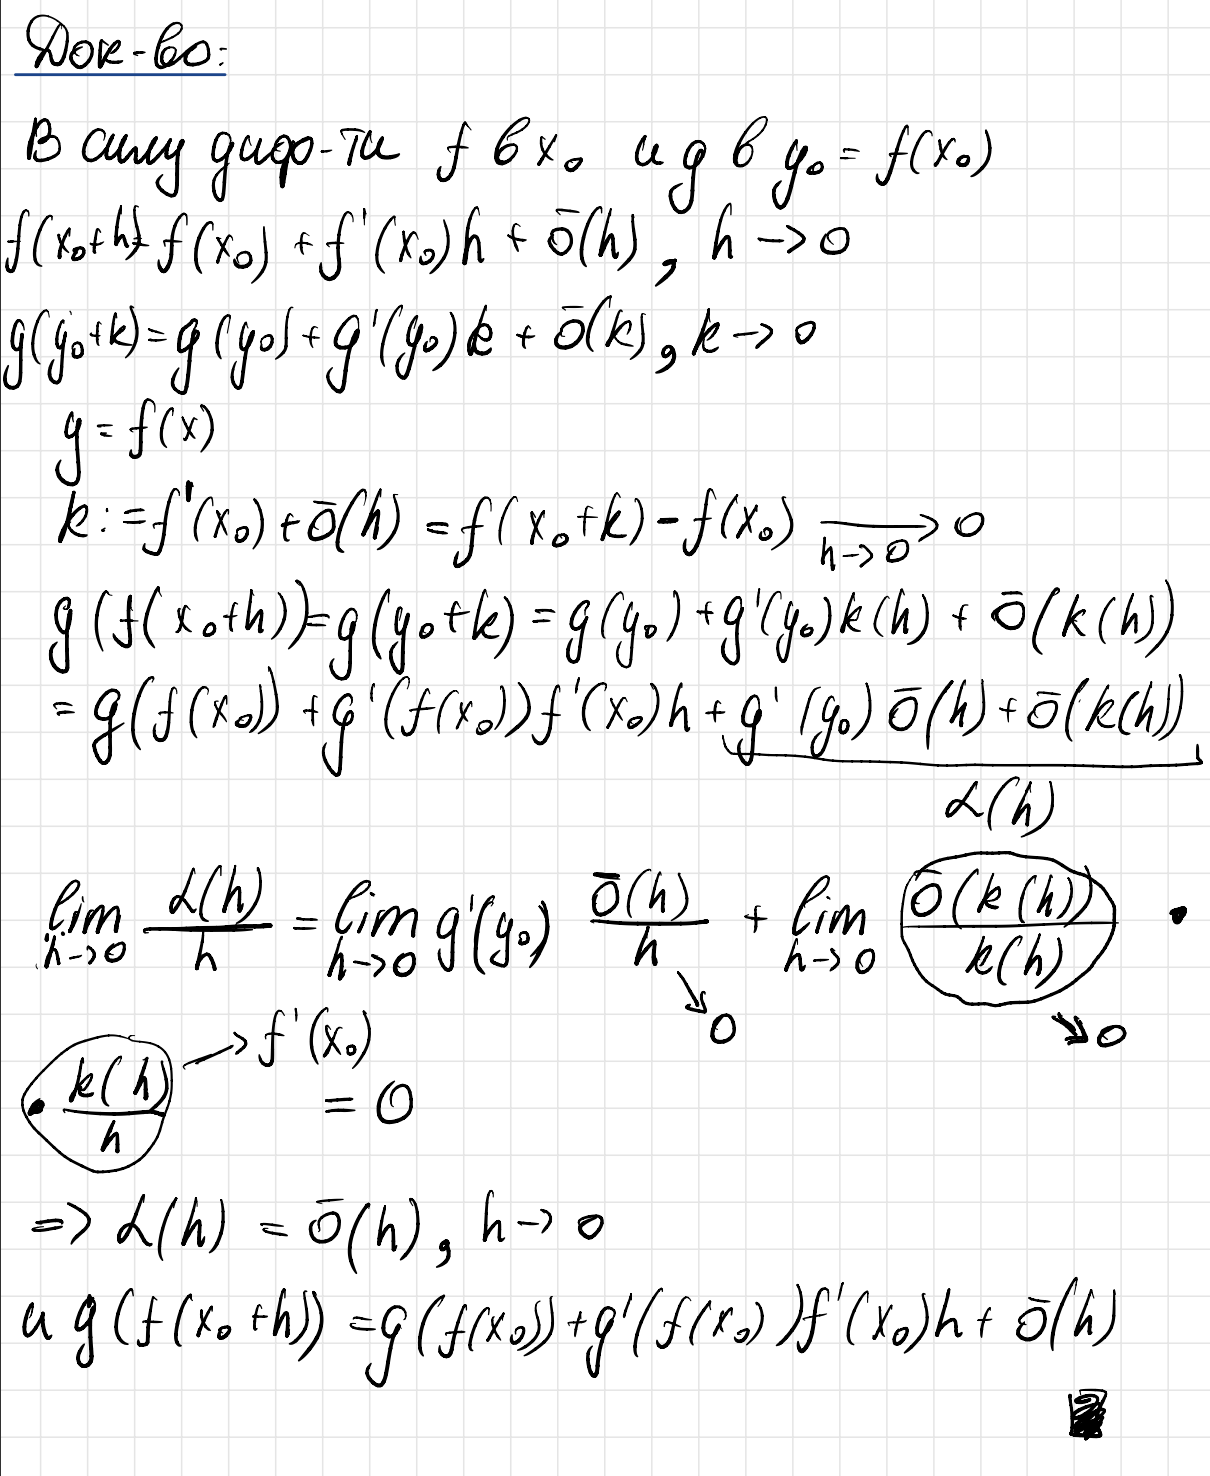 Док-во:
В силу диф-ти f в x₀ и g в y₀ = f(x₀)
f(x₀+h) = f(x₀) + f'(x₀)h + ō(h), h -> 0
g(y₀+k) = g(y₀) + g'(y₀)k + ō(k), k -> 0
y = f(x)
k := f'(x₀) + ō(h) = f(x₀+k) - f(x₀) ⟶ 0
h->0
g(f(x₀+h)) = g(y₀+k) = g(y₀) + g'(y₀)k(h) + ō(k(h))
= g(f(x₀)) + g'(f(x₀))f'(x₀)h + g'(y₀)ō(h) + ō(k(h))
α(h)
lim_{h->0} α(h)/h = lim_{h->0} g'(y₀) ō(h)/h + lim_{h->0} ō(k(h))/k(h) ·
↘0 ↘0
· k(h)/h -> f'(x₀)
= 0
=> α(h) = ō(h), h -> 0
и g(f(x₀+h)) = g(f(x₀)) + g'(f(x₀))f'(x₀)h + ō(h)